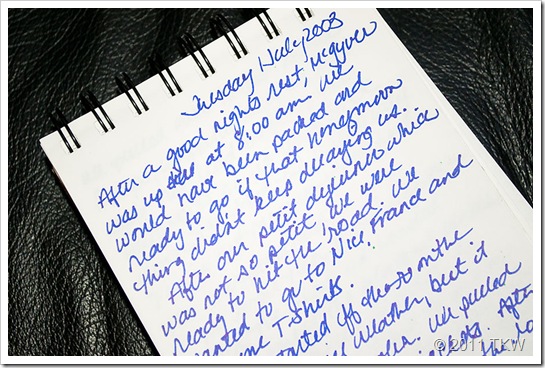 Tuesday 1 July 2003
After a good nights rest, McGyver
was up at 8:00 am. We
would have been packed and
ready to go if that honeymoon
thing didn't keep delaying us.
After our petit dejeuner which
was not so petit we were
ready to hit the road. We
wanted to go to Nice, France and
T-Shirts.
started off the on the
weather, but it
We pulled
After
the
© 2011 TKW